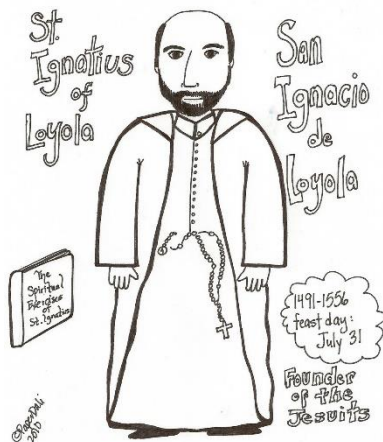 St.
Ignatius
of
Loyola
San
Ignacio
de
Loyola
The
Spiritual
Exercises
of
St. Ignatius
1491-1556
feast day:
July 31
Founder
of the
Jesuits
2010